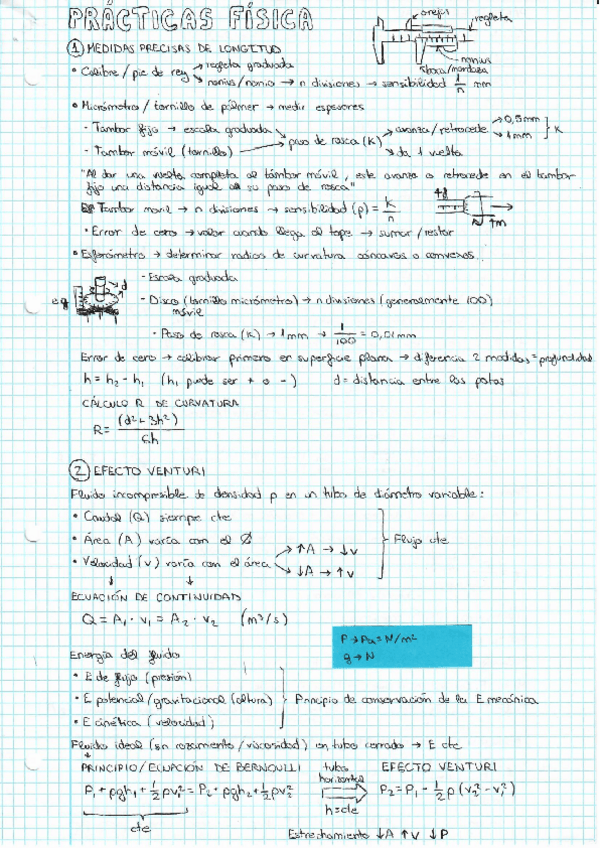 PRÁCTICAS FÍSICA
orejas
regleta
nonius
boca/mordaza
① MEDIDAS PRECISAS DE LONGITUD
• Calibre / pie de rey → regleta graduada
→ nonius/nonio → n divisiones → sensibilidad 1/n mm
• Micrómetro / tornillo de palmer → medir espesores
- Tambor fijo → escala graduada
- Tambor móvil (tornillo) → paso de rosca (K) → avanza / retrocede → 0,5mm
→ 1mm } K
→ da 1 vuelta
"Al dar una vuelta completa al tambor móvil, este avanza o retrocede en el tambor
fijo una distancia igual a su paso de rosca"
Tambor movil → n divisiones → sensibilidad (p) = K/n
• Error de cero → valor cuando llega al tope → sumar / restar
• Esferómetro → determinar radios de curvatura cóncavos o convexos.
- Escala graduada
- Disco (tornillo micrómetro) → n divisiones (generalmente 100)
móvil
• Paso de rosca (K) → 1mm → 1/100 = 0,01mm
d
Error de cero → calibrar primero en superficie plana → diferencia 2 medidas = profundidad
h = h₂ - h₁ (h₁ puede ser + o -) d = distancia entre las patas
CÁLCULO R DE CURVATURA
R = (d² + 3h²) / 6h
② EFECTO VENTURI
Fluido incompresible de densidad ρ en un tubo de diámetro variable:
• Caudal (Q) siempre cte
• Área (A) varía con el Ø
• Velocidad (v) varía con el área → ↑A → ↓v
→ ↓A → ↑v
} Flujo cte
ECUACIÓN DE CONTINUIDAD
Q = A₁ · v₁ = A₂ · v₂ (m³/s)
P → Pa = N/m²
g → N
Energía del fluido
• E de flujo (presión)
• E potencial/gravitacional (altura)
• E cinética (velocidad)
} Principio de conservación de la E mecánica
Fluido ideal (sin rozamiento / viscosidad) en tubo cerrado → E cte
PRINCIPIO/ECUACIÓN DE BERNOULLI
P₁ + ρgh₁ + ½ρv₁² = P₂ + ρgh₂ + ½ρv₂²
cte
tubo
horizontal
h=cte
EFECTO VENTURI
P₂ = P₁ - ½ρ(v₂² - v₁²)
Estrechamiento ↓A ↑v ↓P